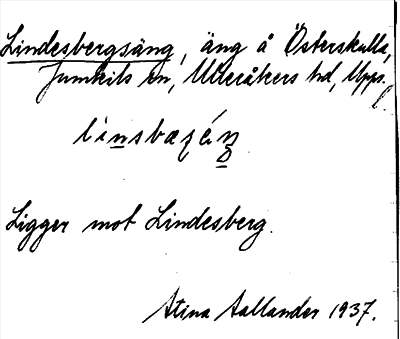 Lindesbergsäng, äng å Österskulla,
Jumkils sn, Ulleråkers hd, Upps.
Ligger mot Lindesberg.
Stina Aallander 1937.